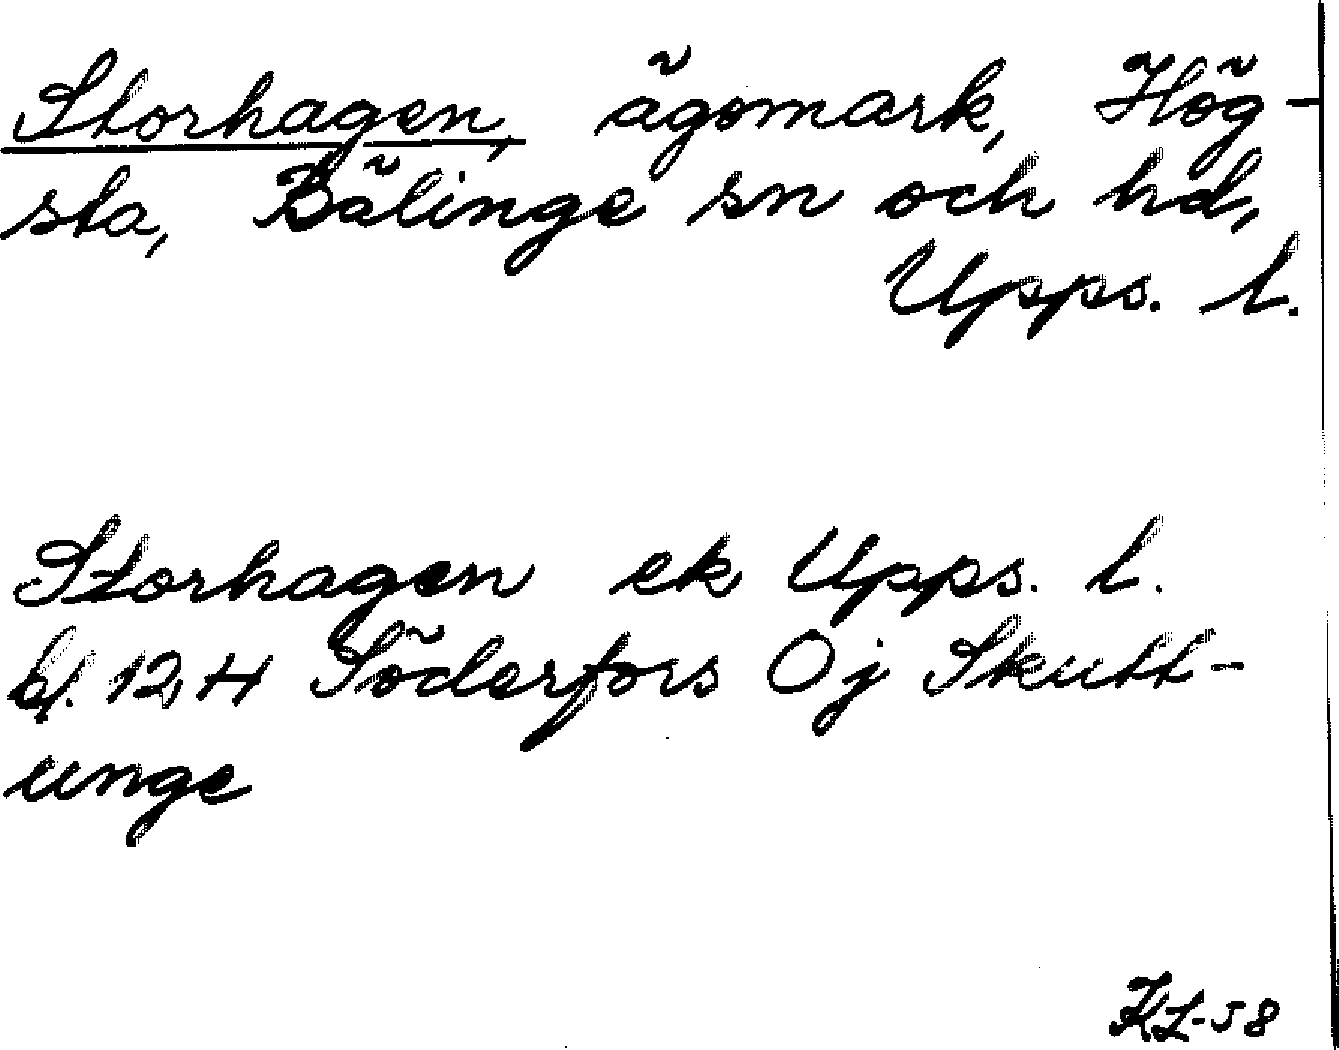 Storhagen, ägomark, Hög-
sta, Bälinge sn och hd,
Upps. l.
Storhagen ek Upps. l.
bl. 12,4 Söderfors Öj Skutt-
unge
KL-58